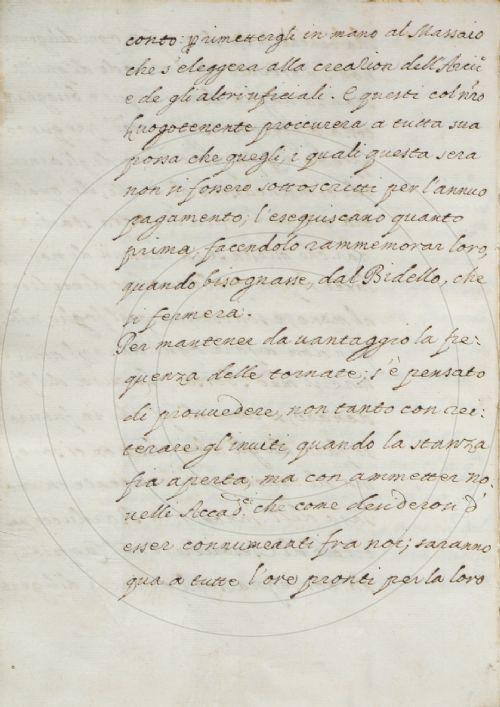 conto: p rimettergli in mano al Massaio
che s'eleggera alla creazion dell'Arciu
e de gli altri uficiali. E questi col nro
Luogotenente proccurerà a tutta sua
possa che quegli, i quali questa sera
non si fossero sottoscritti per l'annuo
pagamento; l'eseguiscano quanto
prima, facendolo rammemorar loro,
quando bisognasse, dal Bidello, che
si fermerà.
Per mantener da vantaggio la fre:
quenza delle tornate; s'è pensato
di provvedere, non tanto con rei:
terare gl'inviti, quando la stanza
fia aperta, ma con ammetter no:
velle Accad.e che come desiderosi d'
esser connumeanti fra noi; saranno
qua a tutte l'ore pronti per la loro